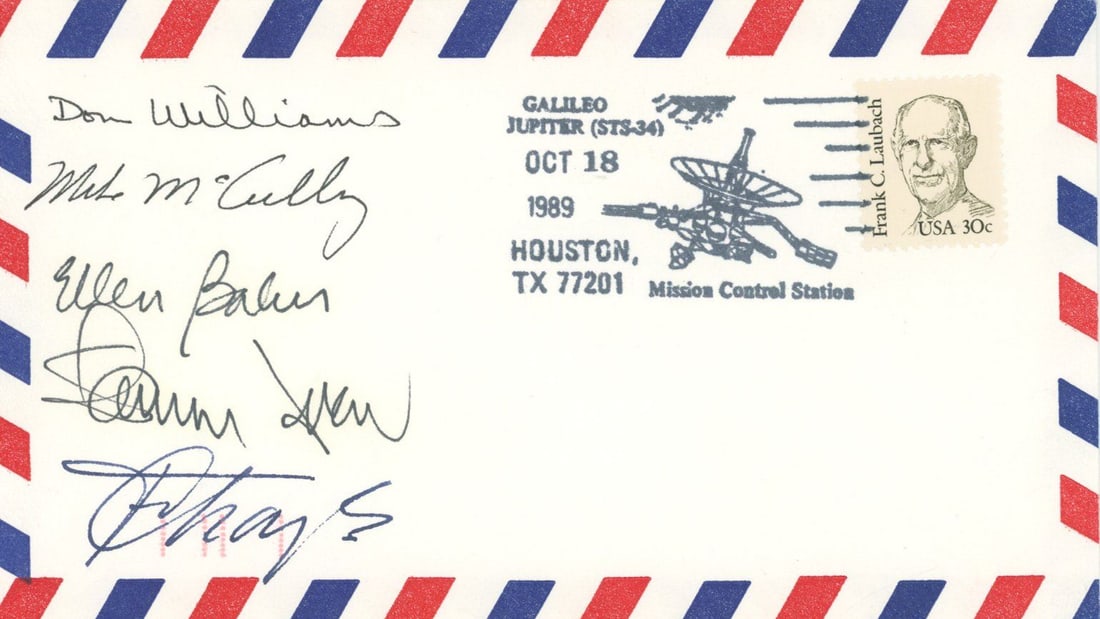 Don Williams
Mike McCulley
Ellen Baker
GALILEO
JUPITER (STS-34)
OCT 18
1989
HOUSTON,
TX 77201
Mission Control Station
Frank C. Laubach
USA 30c